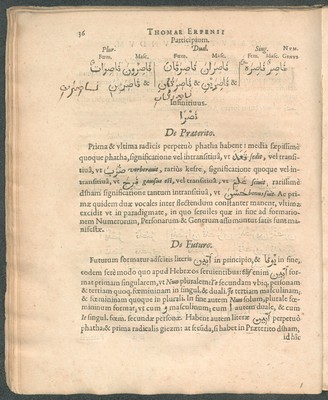 36 THOMAE ERPENII
Participium.
Plur. Dual. Sing. Num.
Fœm. Masc. Fœm. Masc. Fœm. Masc. Genus
نَاصِرٌ نَاصِرَةٌ نَاصِرَانِ نَاصِرَتَانِ نَاصِرُونَ نَاصِرَاتٌ
Infinitivus.
نَصْرًا
De Præterito.
Prima & vltima radicis perpetuò phatha habent: media sæpissimè
quoque phatha, significatione vel intransitiuâ, vt sedit, vel transi-
tiuâ, vt verberauit, rariùs kesre, significatione quoque vel in-
transitiuâ, vt gauisus est, vel transitiuâ, vt sciuit, rarissimè
dhammi significatione tantum intransitiuâ, vt bonus fuit. Ac pri-
mæ quidem duæ vocales inter flectendum constanter manent, vltima
excidit vt in paradigmate, in quo seruiles quæ in fine ad formatio-
nem Numerorum, Personarum & Generum assumuntur satis sunt ma-
nifestæ.
De Futuro.
Futurum formatur adscitis literis in principio, & in fine,
eodem ferè modo quo apud Hebræos seruientibus: Elif enim for-
mat primam singularem, vt Nun pluralem: Te secundam vbiq, personam
& tertiam quoq, fœmininam in singul. & duali. Je tertiam masculinam,
& fœmininam quoque in plurali. In fine autem Nun solum, plurale fœ-
mininum format, vt cum و masculinum; cum autem duale, & cum
Je singul. fœm. secundæ personæ. Habent autem literæ perpetuò
phatha, & prima radicalis giezm: at secunda, si habet in Præterito dham,
id hîc